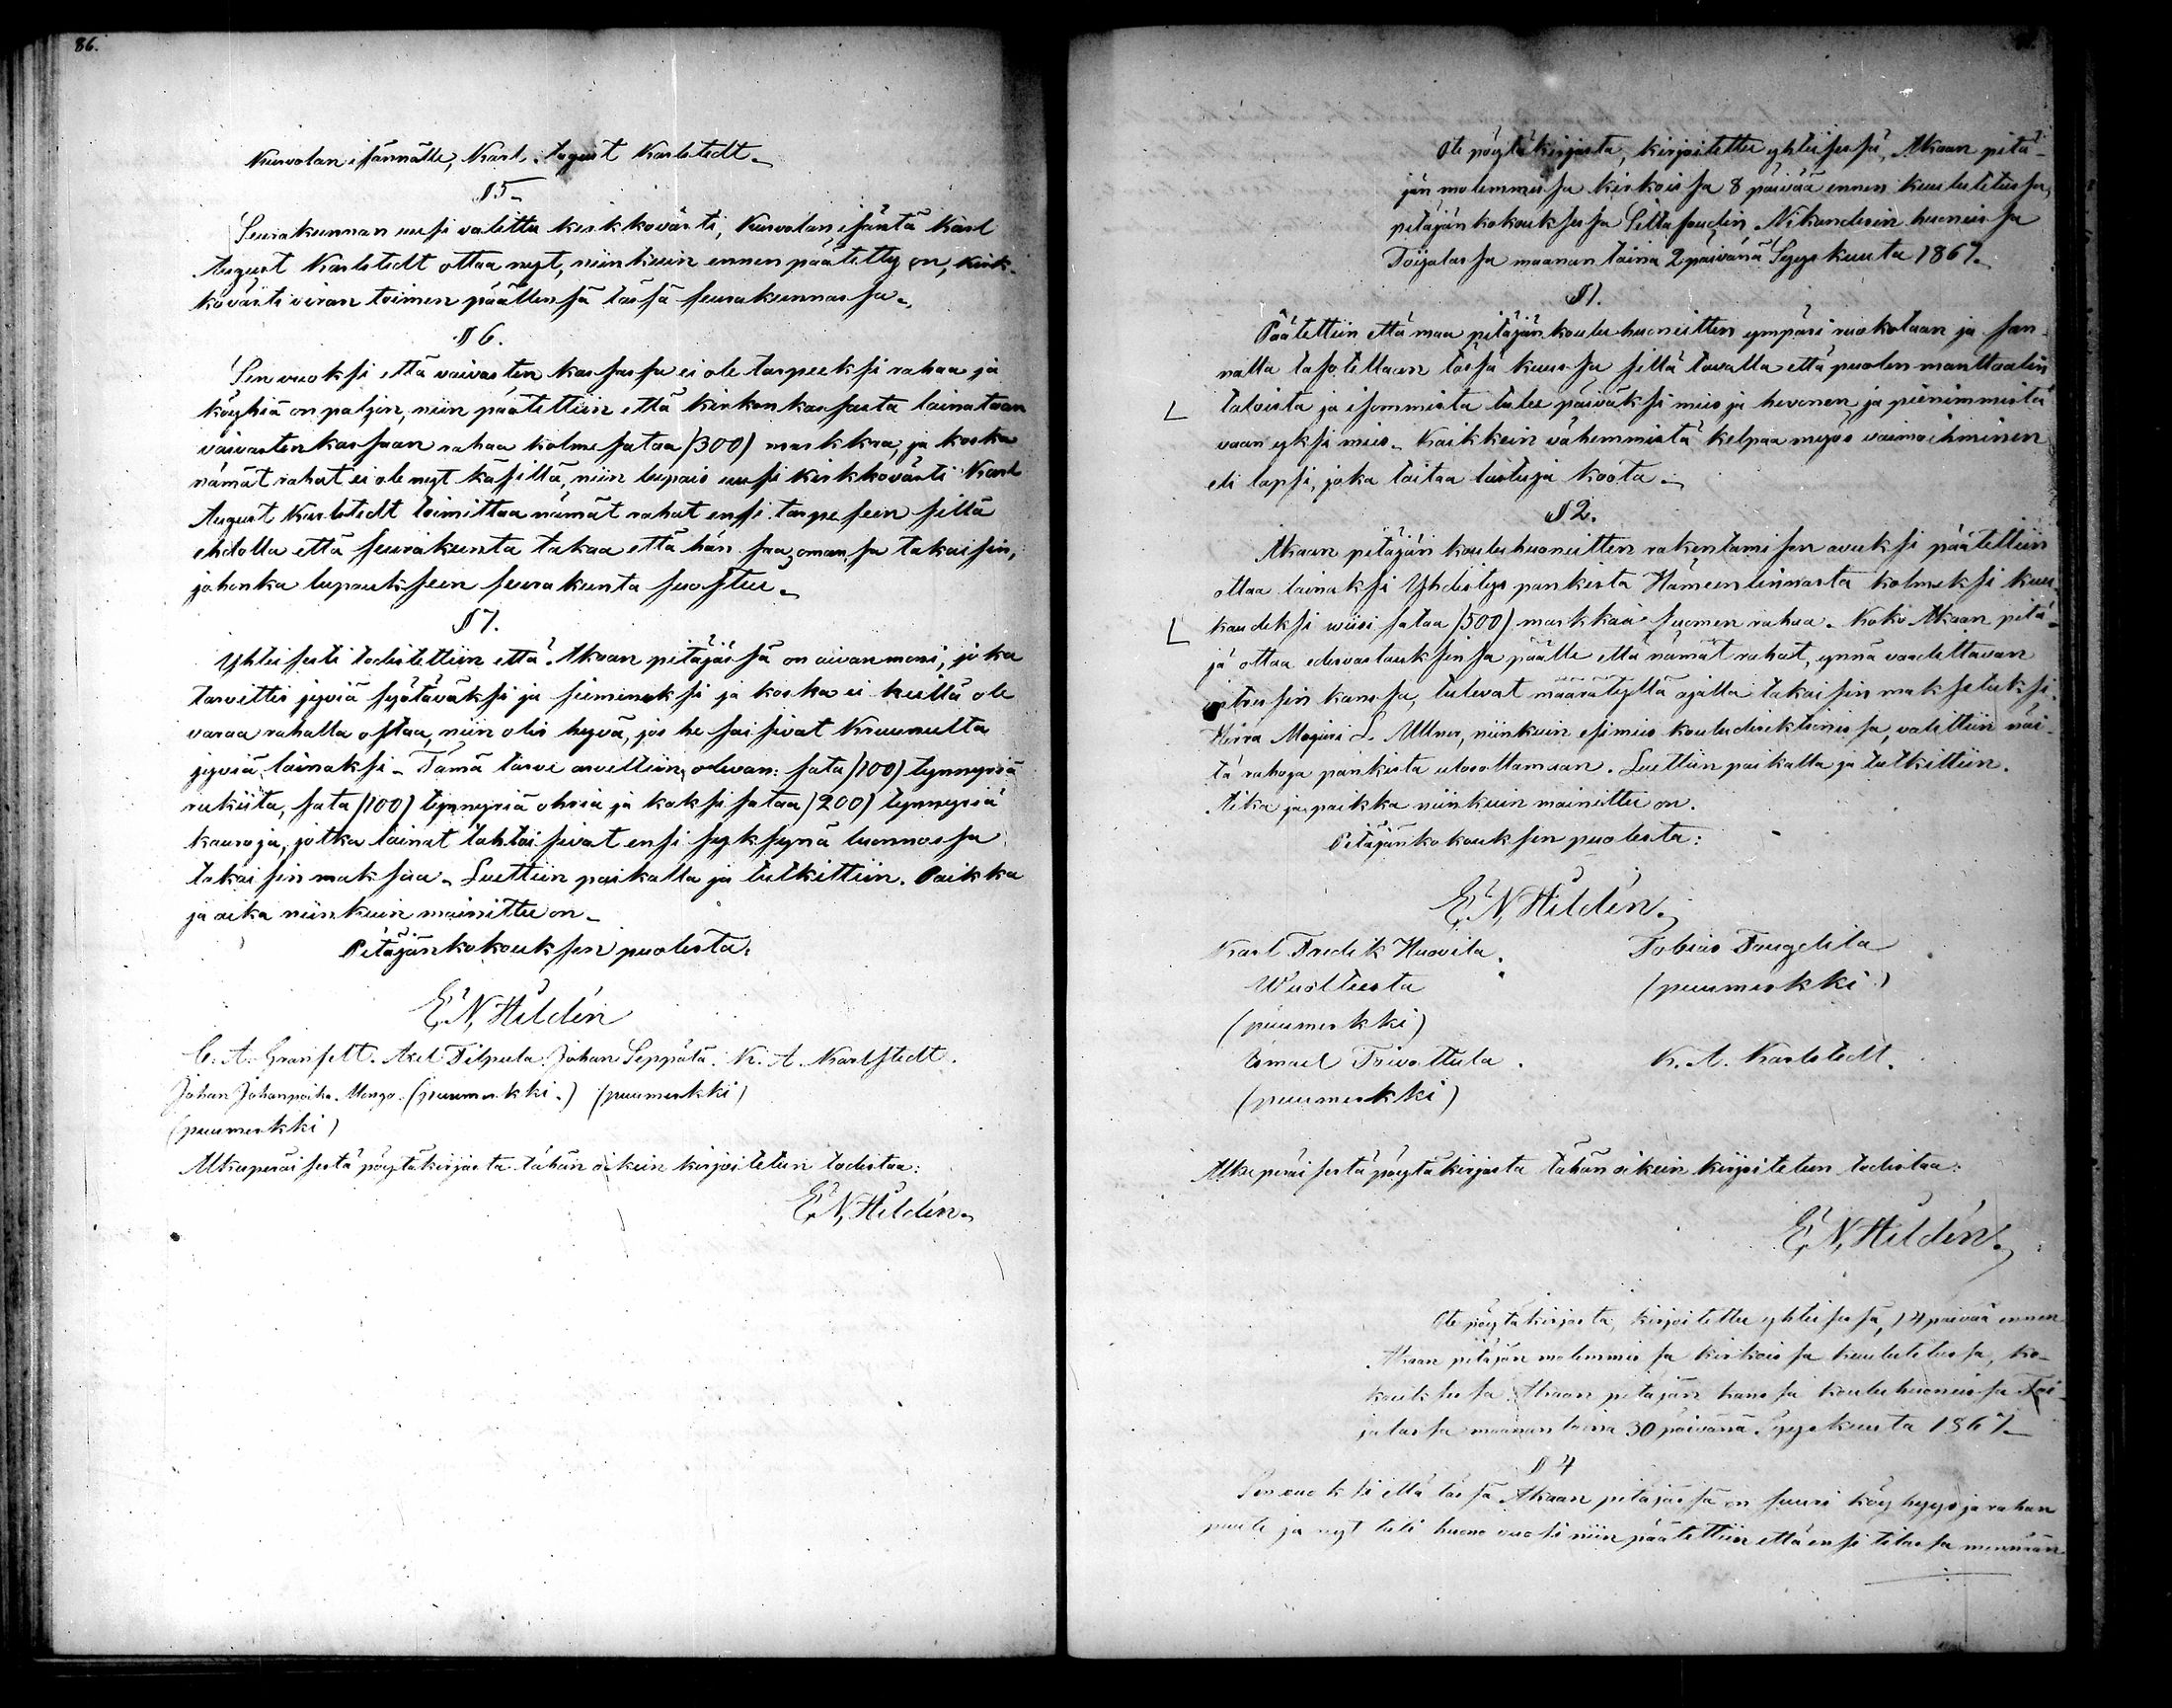 86.
Kurvolan isännälle, Karl August Karlstedt.
§ 5.
Seurakunnan uusi valittu kirkkovärti, Kurvolan isäntä Karl
August Karlstedt ottaa nyt, niinkuin ennen päätetty on, kirk-
kovärti viran toimen päällensä tässä seurakunnassa.
§ 6.
Sen vuoksi että vaivasten kassassa ei ole tarpeeksi rahaa ja
köyhiä on paljon, niin päätettiin että kirkon kassasta lainataan
vaivasten kassaan rahaa kolme sataa /300/ markkaa, ja koska
nämät rahat ei ole nyt käsillä, niin lupais uusi kirkkovärti Karl
August Karlstedt toimittaa nämät rahat ensi tarpeseen sillä
ehdolla että seurakunta takaa että hän saa omansa takaisin,
johonka lupaukseen seurakunta suostuu.
§ 7.
Yhteisesti todistettiin että Akaan pitäjässä on aivan moni, joka
tarvittis jyviä syötäväksi ja siemeneksi ja koska ei heillä ole
varaa rahalla ostaa, niin olis hyvä, jos he saisivat Kruunulta
jyviä lainaksi. Tämä tarve arveltiin olevan: sata /100/ tynnyriä
rukiita, sata /100/ tynnyriä ohria ja kaksi sataa /200/ tynnyriä
kauroja, jotka lainat tahtoisivat ensi syksynä luonnossa
takaisin maksaa. Luettiin paikalla ja tutkittiin. Paikka
ja aika niinkuin mainittu on.
Pitäjänkokouksen puolesta:
E. N. Hildén
C. A. Granfelt. Axel Tilpula. Johan Seppälä. K. A. Karlstedt.
Johan Johanpoika. (puumerkki.) (puumerkki)
(puumerkki)
Alkuperäisestä pöytäkirjasta tähän oikein kirjoitetun todistaa:
E. N. Hildén.
Ote pöytäkirjasta, kirjoitettu yhteisessä, Akaan pitä-
jän molemmissa kirkoissa 8 päivää ennen kuulutetussa,
pitäjänkokouksessa Siltafoudin Nikanderin huoneissa
Toijalassa maanantaina 2 päivänä Syyskuuta 1867.
§ 1.
Päätettiin että maa pitäjän kouluhuoneitten ympäri ruokotaan ja san-
nalla tasotellaan tässä kuussa sillä tavalla että puolen manttaalin
taloista ja isommista tulee päiväksi mies ja hevonen ja pienimmistä
vaan yksi mies. Kaikkein vähemmistä kelpaa myös vaimoihminen
eli lapsi, joka taitaa lastuja koota.
§ 2.
Akaan pitäjän kouluhuoneitten rakentamisen avuksi päätettiin
ottaa lainaksi Yhdistys pankista Hämeenlinnasta kolmeksi kuu-
kaudeksi wiisi sataa /500/ markkaa Suomen rahaa. Koko Akaan pitä-
jä ottaa edesvastauksensa päälle että nämät rahat, ynnä vaadittavan
intressin kanssa, tulevat määrätyllä ajalla takaisin maksetuksi.
Herra Majuri L. Ullner, niinkuin esimies kouludirektionissa, valittiin näi-
tä rahoja pankista ulosottamaan. Luettiin paikalla ja tutkittiin.
Aika ja paikka niinkuin mainittu on.
Pitäjänkokouksen puolesta:
E. N. Hildén.
Karl Fredik Huovila. Tobias
(puumerkki)
(puumerkki)
Ismael Toivottula. K. A. Karlstedt.
(puumerkki)
Alkuperäisestä pöytäkirjasta tähän oikein kirjoitetun todistaa:
E. N. Hildén.
Ote pöytäkirjasta, kirjoitettu yhteisessä, 14 päivää ennen
Akaan pitäjän molemmissa kirkoissa kuulutetussa, ko-
kouksessa Akaan pitäjän kanssa kouluhuoneissa Toi-
jalassa maanantaina 30 päivänä Syyskuuta 1867.
§ 4
Sen vuoksi että tässä Akaan pitäjässä on suuri köyhyys ja rahan
puute ja nyt tuli huono vuosi niin päätettiin että ensi tilassa mennään